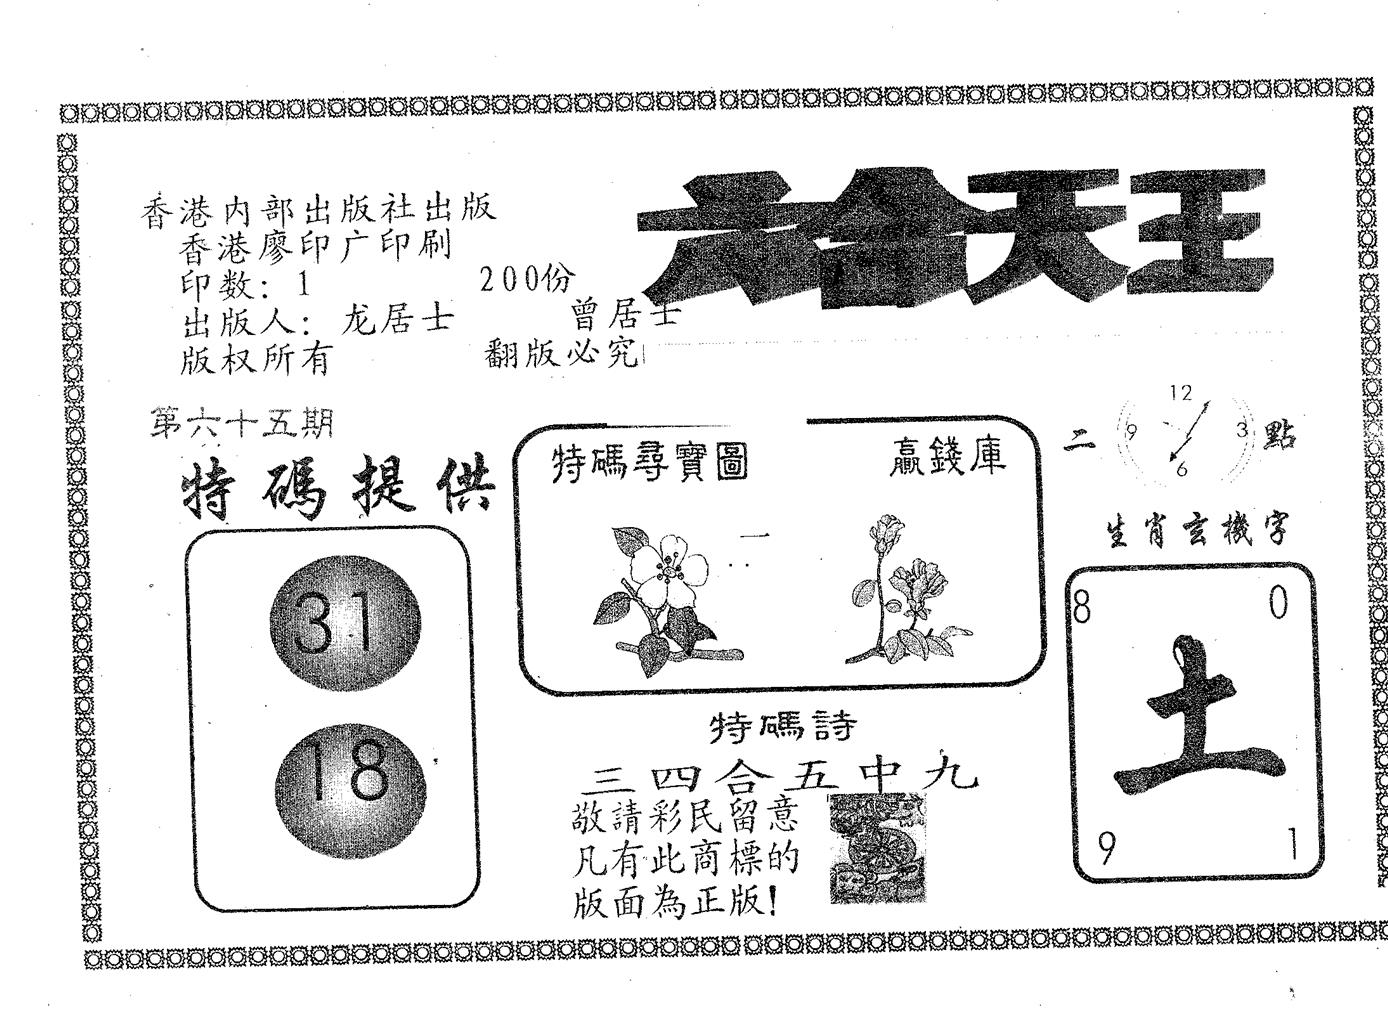 六合天王
香港内部出版社出版
香港廖印广印刷
印数: 1 200份
出版人: 龙居士 曾居士
版权所有 翻版必究
第六十五期
特碼提供
31
18
特碼尋寶圖 贏錢庫
一
特碼詩
三四合五中九
敬請彩民留意
凡有此商標的
版面為正版!
二 12 9 3 6 點
生肖玄機字
8 0
土
9 1